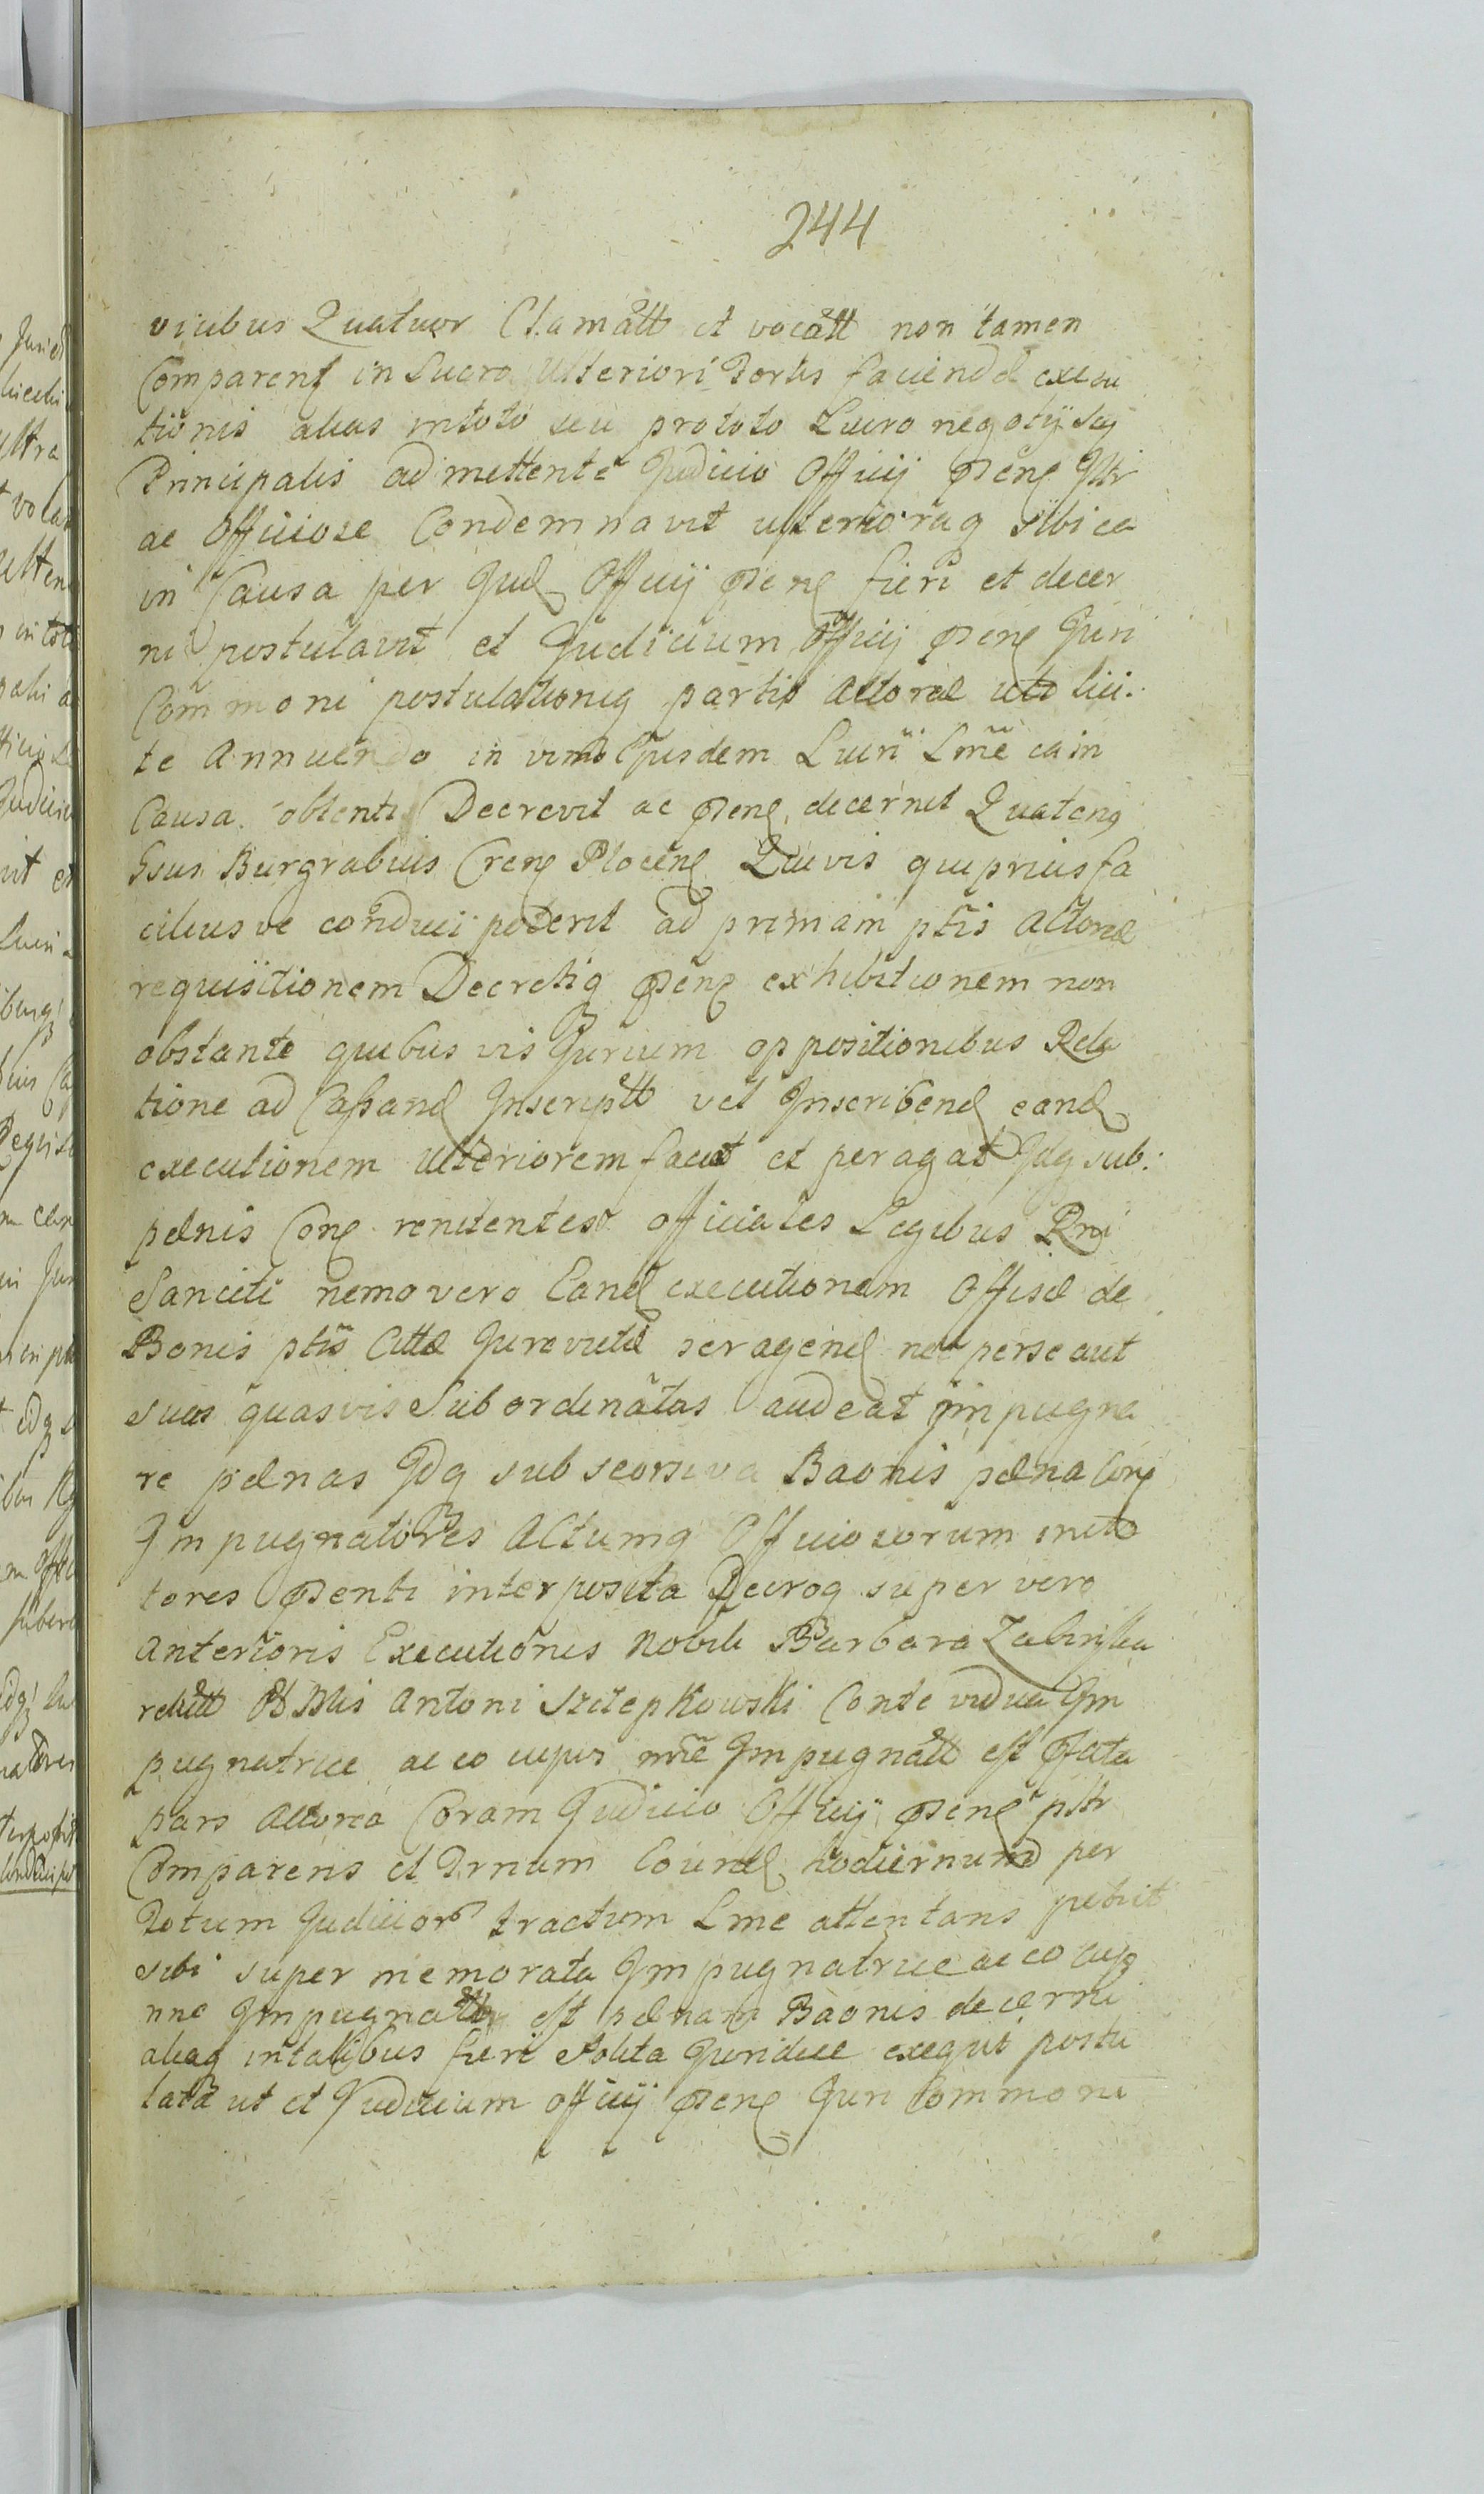 244
vicibus Quatuor Clamatt et vocatt non tamen
Comparen in Lucro Ulteriori Fortis faciendæ execu
tionis alias in toto seu pro toto Lucro negotij sui
Principalis admittente Judicio Officij præsen Jttr
ac Officiose Condemnavit ulterioraq sibi ea
in Causa per Jud Officij præsen fieri et decer
ni postulavit et Judicium Officij præsen Juri
Commoni postulationiq partis Actoreæ uti lici
te Annuendo in vim Ejusdem Lucri Lme ea in
Causa obtenti Decrevit ac præsen decernit Quateng
Gsus Burgrabius Cren Plocen Quivis qui prius fa
ciliusve conduci poterit ad primam ptis Actoreæ
requisitionem Decretiq præsen exhibitionem non
obstante quibus vis Jurium oppositionibus Rela
tione ad Cassand Inscriptt vel Inscribend eand
executionem ulteriorem faciat et peragat Jdq sub
pænis Con renitentes officiales Legibus Rni
Sanciti nemo vero Eand executionem Officiose de
Bonis ptis Cittæ Jure victæ peragend per se aut
suas quasvis Subordinatas audeat impugna
re pænas Jdq sub seorsiva Baonis pæna Con
Impugnatores Actumq Officiosorum
tores præsenti interposita Decroq super vero
anterioris Executionis Nobili Barbara Zabinska
relictt Antoni Szczepkowski Conte vidua Im
pugnatrice ac eo cujus nne Impugnatt est præfata
pars Actorea Coram Judicio Officij præsen pttr
Comparens et Trnum Eound hodiernum per
Totum Judicior tractum Lme attentans petiit
sibi super memorata Impugnatrice ac eo cujq
nne Impugnatt est pænam Baonis decerni
aliaq in talibus fieri solita Juridice exequi postu
lata ut et Judicium officij præsen Juri Commoni